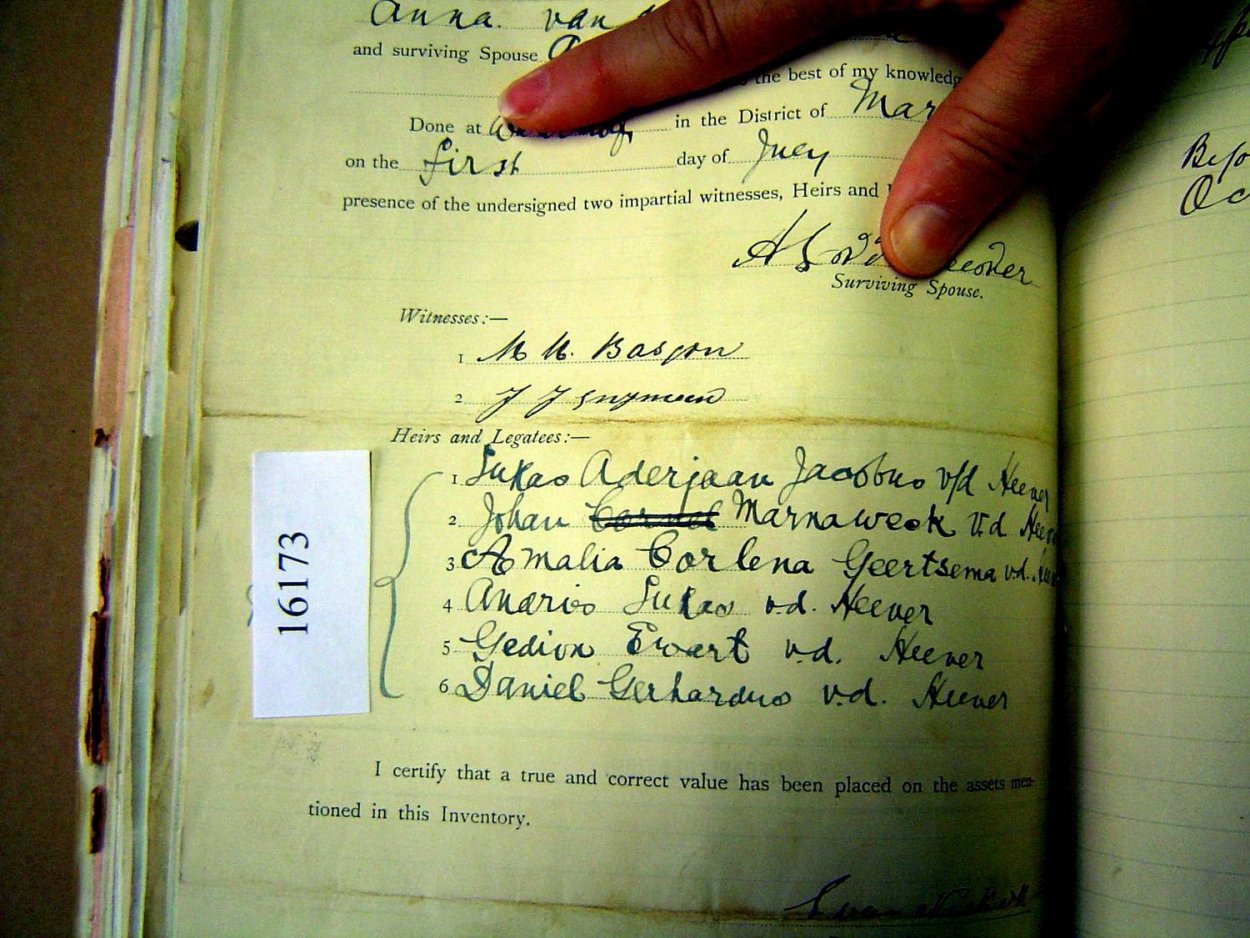 Anna. van
and surviving Spouse
the best of my knowledg
Done at in the District of Mar
on the first day of July
presence of the undersigned two impartial witnesses, Heirs and
Surviving Spouse.
Witnesses:—
1 M M. Basson
2 J J Snyman
Heirs and Legatees:—
1 Lukas Aderjaan Jacobus v/d Heever
2 Johan Marnaweck v.d
3 Amalia Corlena Geertsema v.d.
4 Andries Lukas v.d. Heever
5 Gedion Ewart v.d. Heever
6 Daniel Gerhardus v.d. Heever
16173
I certify that a true and correct value has been placed on the assets men-
tioned in this Inventory.
Befo
Oc